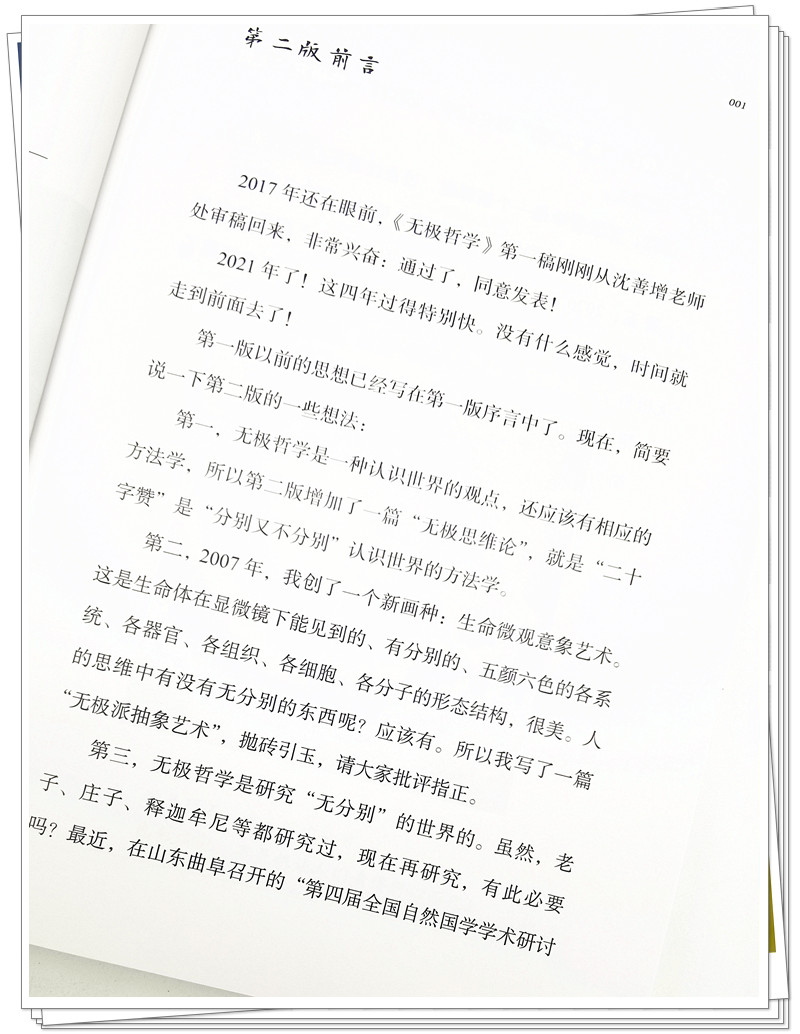 第二版前言
001
2017 年还在眼前，《无极哲学》第一稿刚刚从沈善增老师
处审稿回来，非常兴奋：通过了，同意发表！
2021 年了！这四年过得特别快。没有什么感觉，时间就
走到前面去了！
第一版以前的思想已经写在第一版序言中了。现在，简要
说一下第二版的一些想法：
第一，无极哲学是一种认识世界的观点，还应该有相应的
方法学，所以第二版增加了一篇“无极思维论”，就是“二十
字赞”是“分别又不分别”认识世界的方法学。
第二，2007 年，我创了一个新画种：生命微观意象艺术。
这是生命体在显微镜下能见到的、有分别的、五颜六色的各系
统、各器官、各组织、各细胞、各分子的形态结构，很美。人
的思维中有没有无分别的东西呢？应该有。所以我写了一篇
“无极派抽象艺术”，抛砖引玉，请大家批评指正。
第三，无极哲学是研究“无分别”的世界的。虽然，老
子、庄子、释迦牟尼等都研究过，现在再研究，有此必要
吗？最近，在山东曲阜召开的“第四届全国自然国学学术研讨